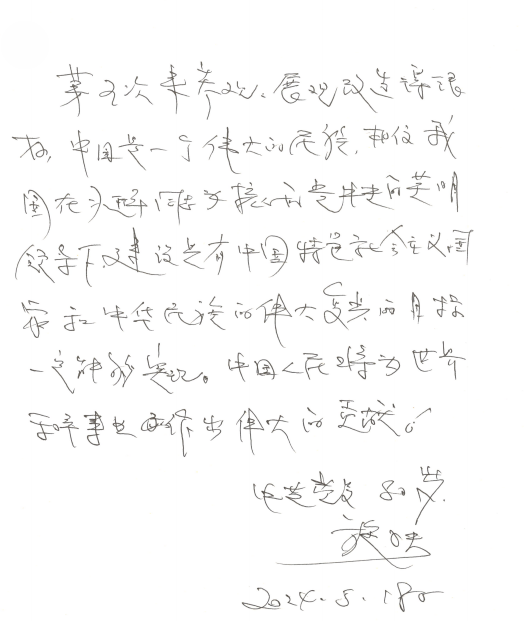 第五次来参观、展览改造得很
好，中国是一个伟大的民族，相信我
国在习近平同志为核心的党中央的英明
领导下建设是有中国特色社会主义国
家和中华民族的伟大复兴的目标
一定能够实现。中国人民将为世界
和平事业作出伟大的贡献。
80岁
2024.5.18日